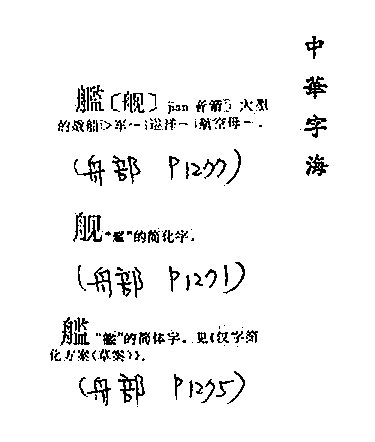 中華字海
艦〔舰〕jian 音箭 大型
的战船▷军~|巡洋~|航空母~。
(舟部 P1277)
舰 "艦"的简化字。
(舟部 P1271)
"艦"的简体字。见《汉字简
化方案(草案)》。
(舟部 P1275)